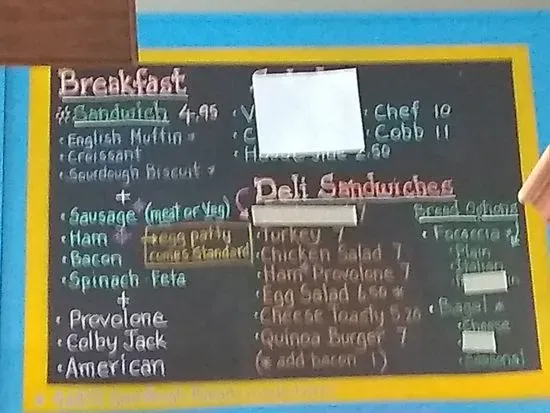 Breakfast
Sandwich 4.95
English Muffin
Croissant
Sourdough Biscuit
+
Sausage (meat or Veg)
Ham
Bacon
Spinach Feta
egg patty
comes Standard
+
Provolone
Colby Jack
American
Chef 10
Cobb 11
Deli Sandwiches
Turkey 7
Chicken Salad 7
Ham Provolone 7
Egg Salad 6.50
Cheese Toasty 5.20
Quinoa Burger 7
(* add bacon 1)
Bread Options
Focaccia
Plain
Bagel
Cheese
Seasonal